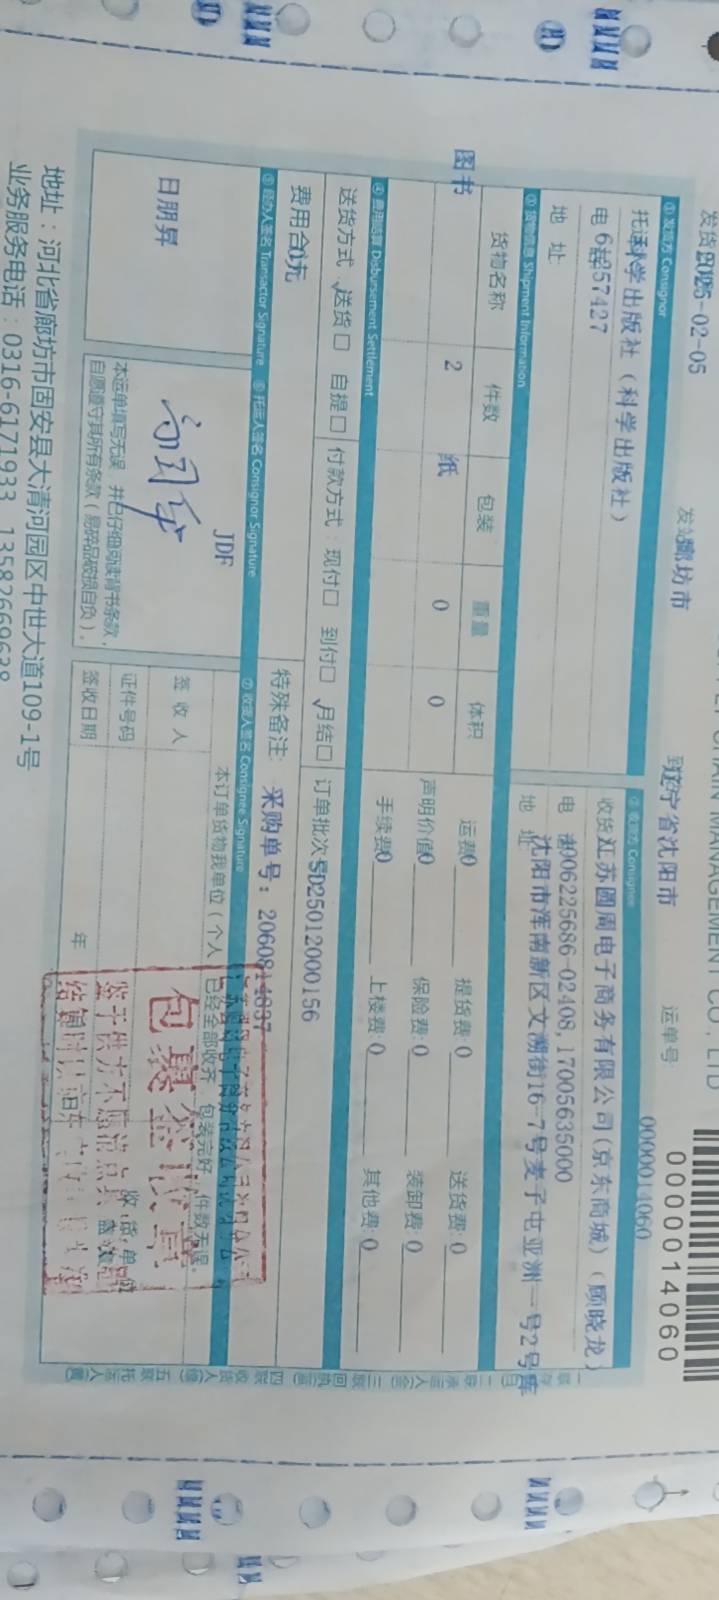 CHAIN MANAGEMENT CO., LTD
发货日期2025-02-05 发站廊坊市 到辽宁省沈阳市 运单号: 0000014060
0000014060
① 发货方 Consignor
托运科学出版社（科学出版社）
电 6 57427
地 址
② 收货方 Consignee
收货江苏圆周电子商务有限公司(京东商城)（顾晓龙）
电 4006225686-02408,17005635000
地 址 沈阳市浑南新区文溯街16-7号麦子屯亚洲一号2号库
③ 货物信息 Shipment Information
货物名称 件数 包装 重量 体积
图书 2 纸 0 0
运费0 提货费: 0 送货费: 0
声明价值0 保险费: 0 装卸费: 0
手续费0 上楼费: 0 其他费: 0
④ 费用结算 Disbursement Settlement
送货方式 √送货□ 自提□ 付款方式: 现付□ 到付□ √月结□ 订单批次号SD25012000156
费用合 0元
特殊备注: 采购单号: 2060814837
⑤ 经办人签名 Transactor Signature ⑥ 托运人签名 Consignor Signature ⑦ 收货人签名 Consignee Signature
日朋昇
JDF
本运单填写无误，并已仔细阅读背书条款，
自愿遵守其所有条款（易碎品破损自负）。
本订单货物我单位（个人 已经全部收齐，包装完好，件数无误。
签 收 人
证件号码
签收日期 年
收货单位
包裹签收章
鉴于供方不愿清点
地址：河北省廊坊市固安县大清河园区中世大道109-1号
业务服务电话：0316-6171933 13582669638